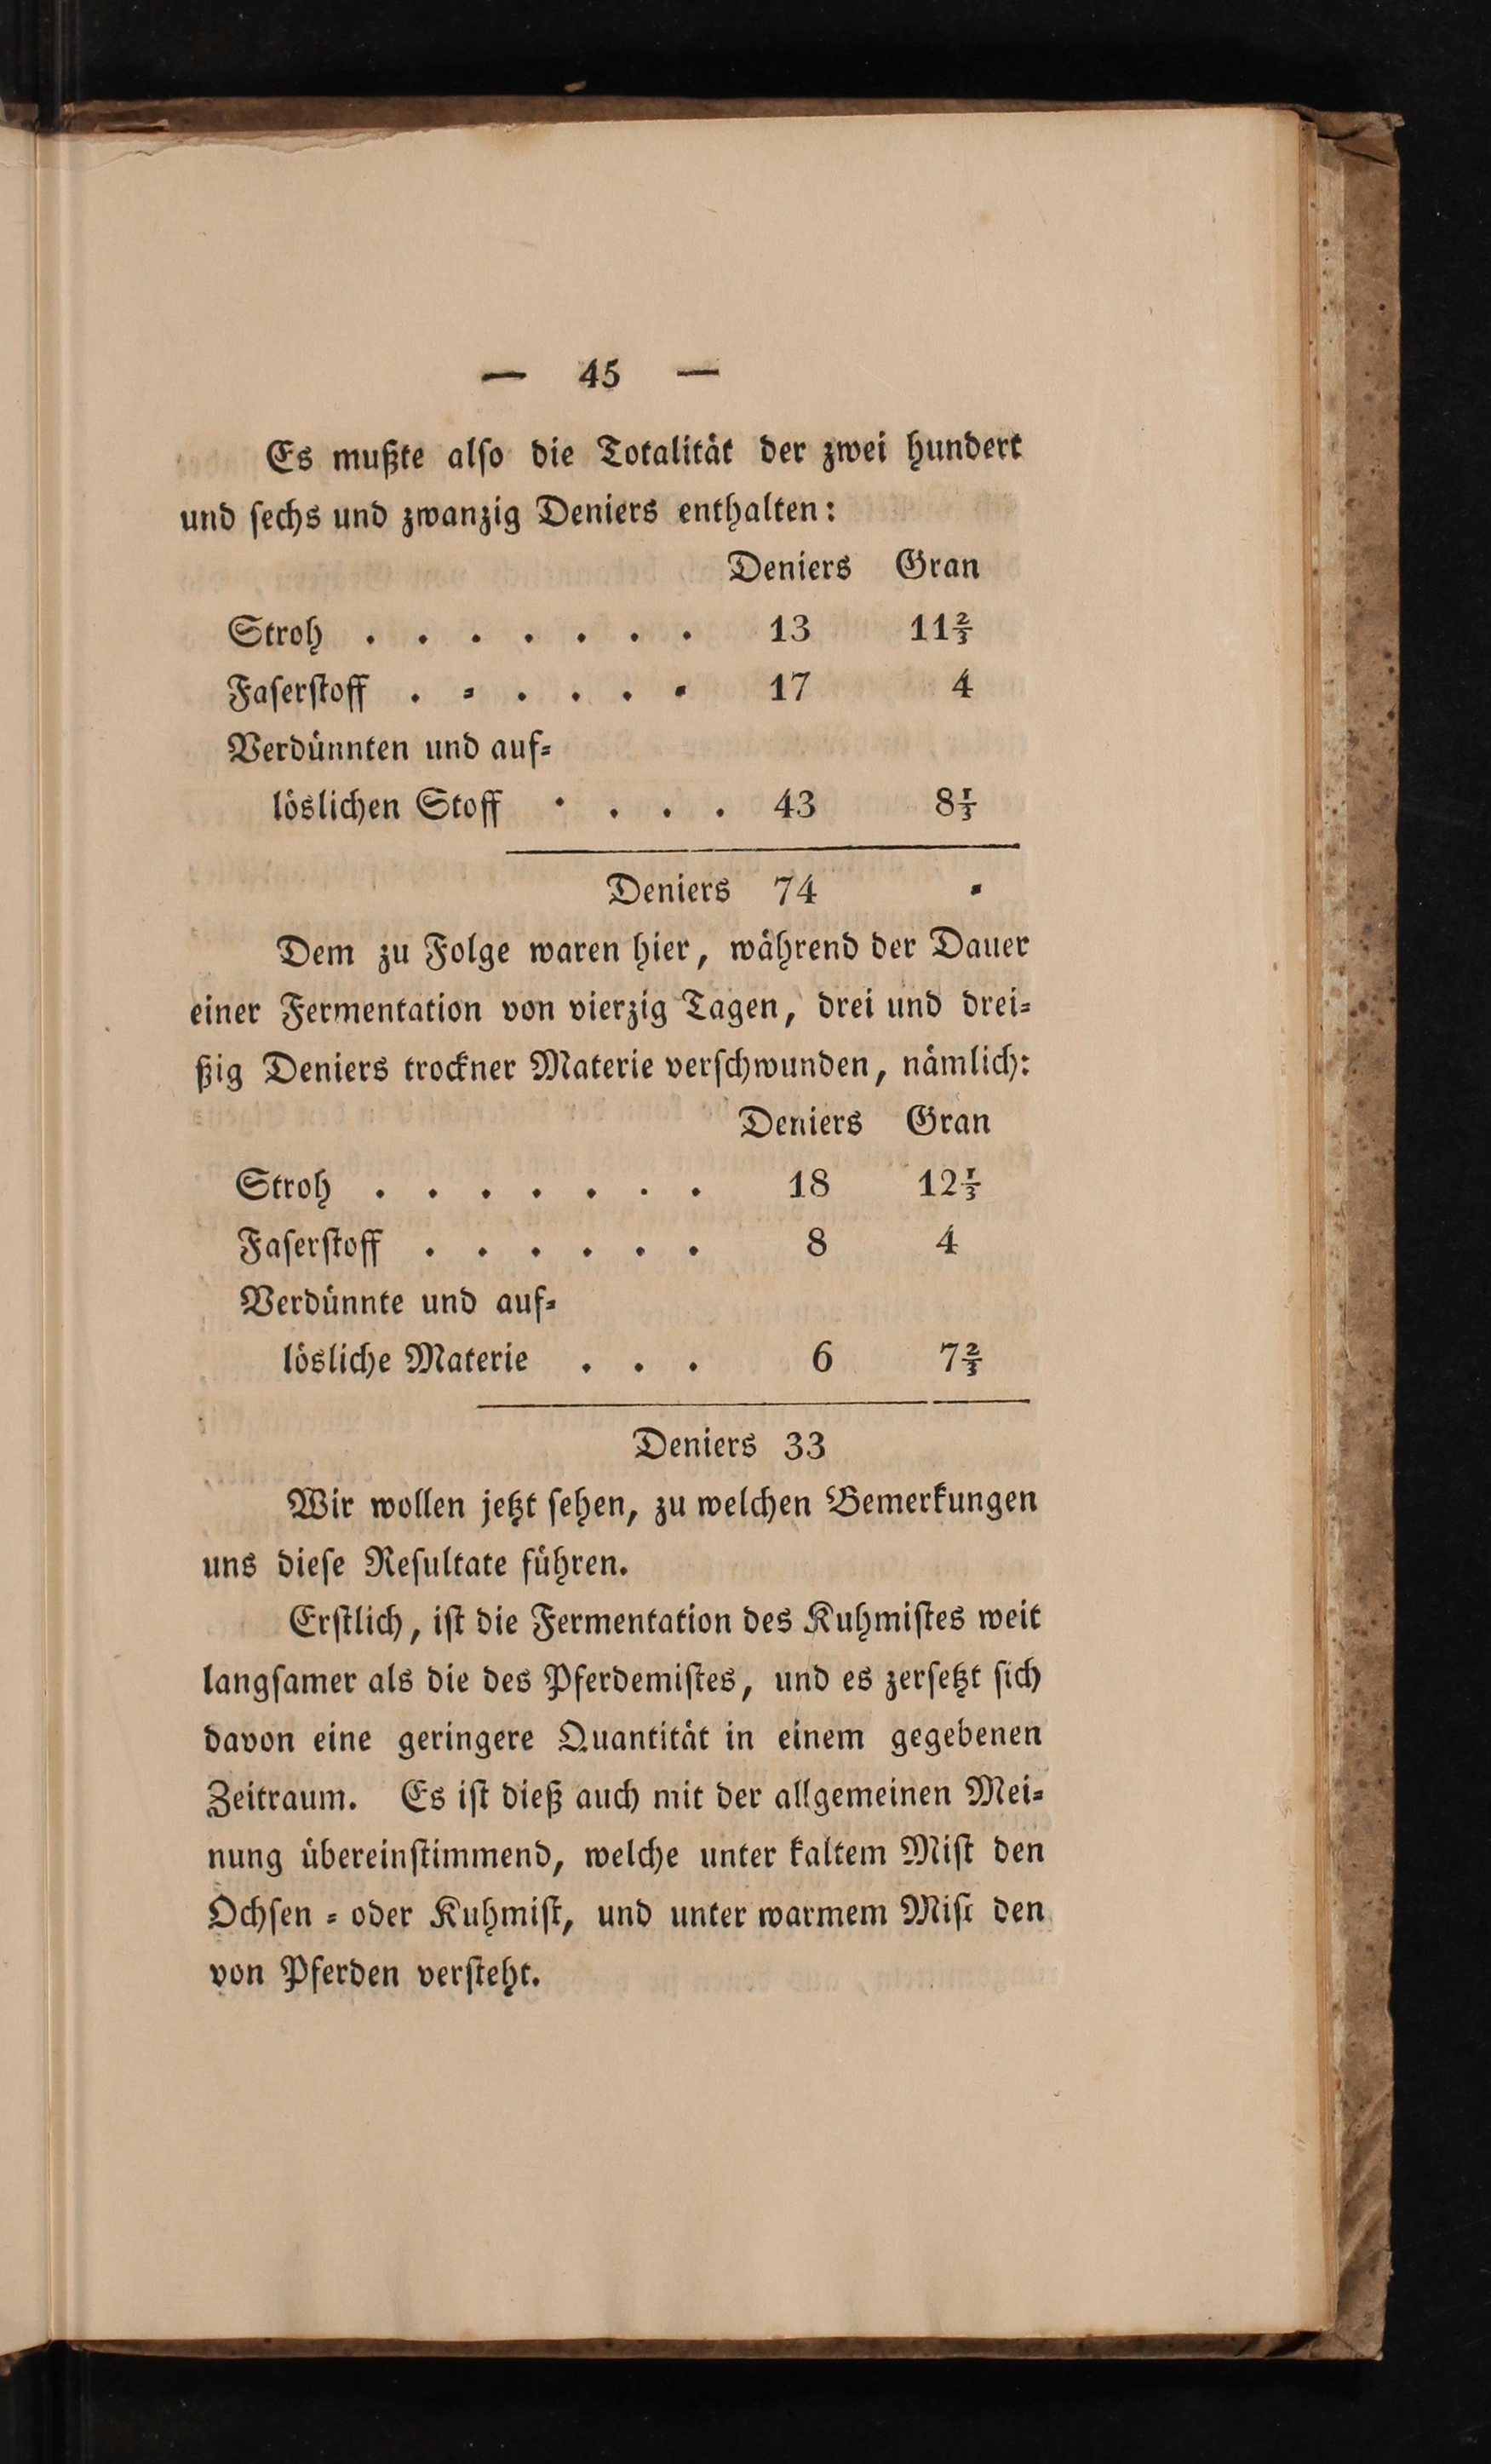 — 45 —
Es mußte alſo die Totalität der zwei hundert
und ſechs und zwanzig Deniers enthalten:
Deniers Gran
Stroh . . . . . . . 13 11⅔
Faſerſtoff . . . . . . 17 4
Verdünnten und auf⸗
löslichen Stoff . . . . 43 8⅓
Deniers 74 ⸗
Dem zu Folge waren hier, während der Dauer
einer Fermentation von vierzig Tagen, drei und drei⸗
ßig Deniers trockner Materie verſchwunden, nämlich:
Deniers Gran
Stroh . . . . . . . 18 12⅓
Faſerſtoff . . . . . . 8 4
Verdünnte und auf⸗
lösliche Materie . . . 6 7⅔
Deniers 33
Wir wollen jetzt ſehen, zu welchen Bemerkungen
uns dieſe Reſultate führen.
Erſtlich, iſt die Fermentation des Kuhmiſtes weit
langſamer als die des Pferdemiſtes, und es zerſetzt ſich
davon eine geringere Quantität in einem gegebenen
Zeitraum. Es iſt dieß auch mit der allgemeinen Mei⸗
nung übereinſtimmend, welche unter kaltem Miſt den
Ochſen ⸗ oder Kuhmiſt, und unter warmem Miſt den
von Pferden verſteht.